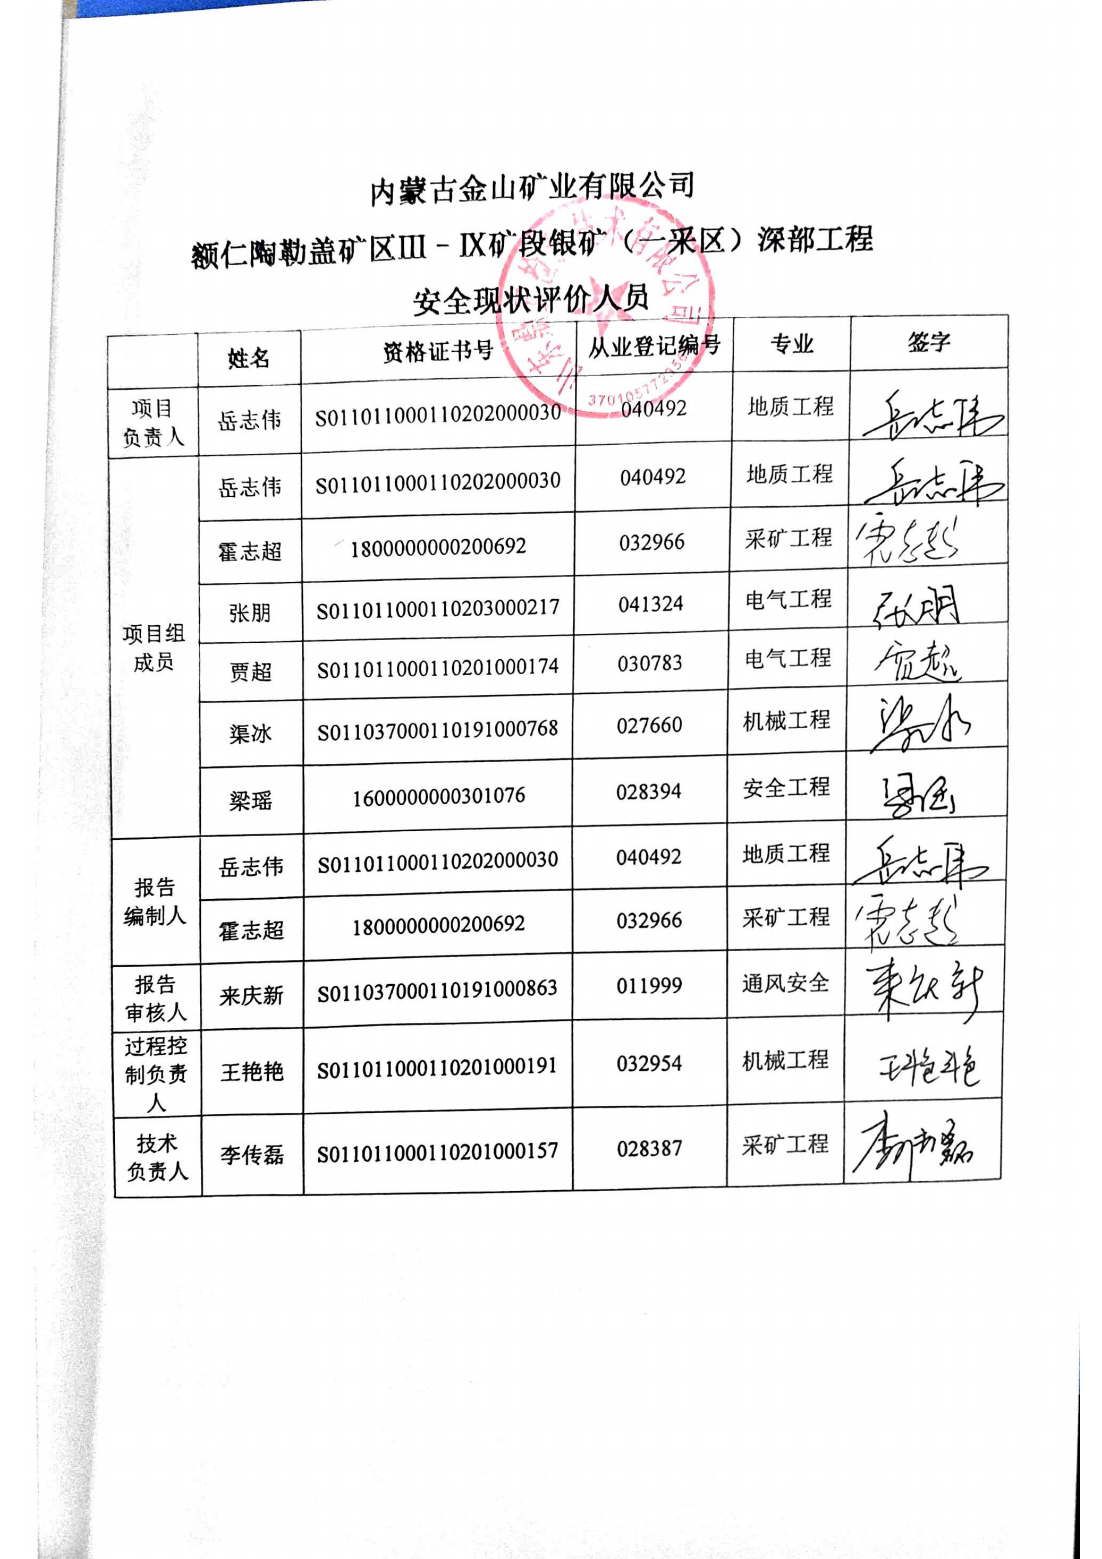 内蒙古金山矿业有限公司
额仁陶勒盖矿区III-IX矿段银矿（一采区）深部工程
安全现状评价人员
姓名 资格证书号 从业登记编号 专业 签字
项目
负责人 岳志伟 S011011000110202000030 040492 地质工程 岳志伟
项目组
成员
岳志伟 S011011000110202000030 040492 地质工程 岳志伟
霍志超 1800000000200692 032966 采矿工程 霍志超
张朋 S011011000110203000217 041324 电气工程 张朋
贾超 S011011000110201000174 030783 电气工程 贾超
渠冰 S011037000110191000768 027660 机械工程 渠冰
梁瑶 1600000000301076 028394 安全工程 梁瑶
报告
编制人
岳志伟 S011011000110202000030 040492 地质工程 岳志伟
霍志超 1800000000200692 032966 采矿工程 霍志超
报告
审核人 来庆新 S011037000110191000863 011999 通风安全 来庆新
过程控
制负责
人 王艳艳 S011011000110201000191 032954 机械工程 王艳艳
技术
负责人 李传磊 S011011000110201000157 028387 采矿工程 李传磊
技术有限公司